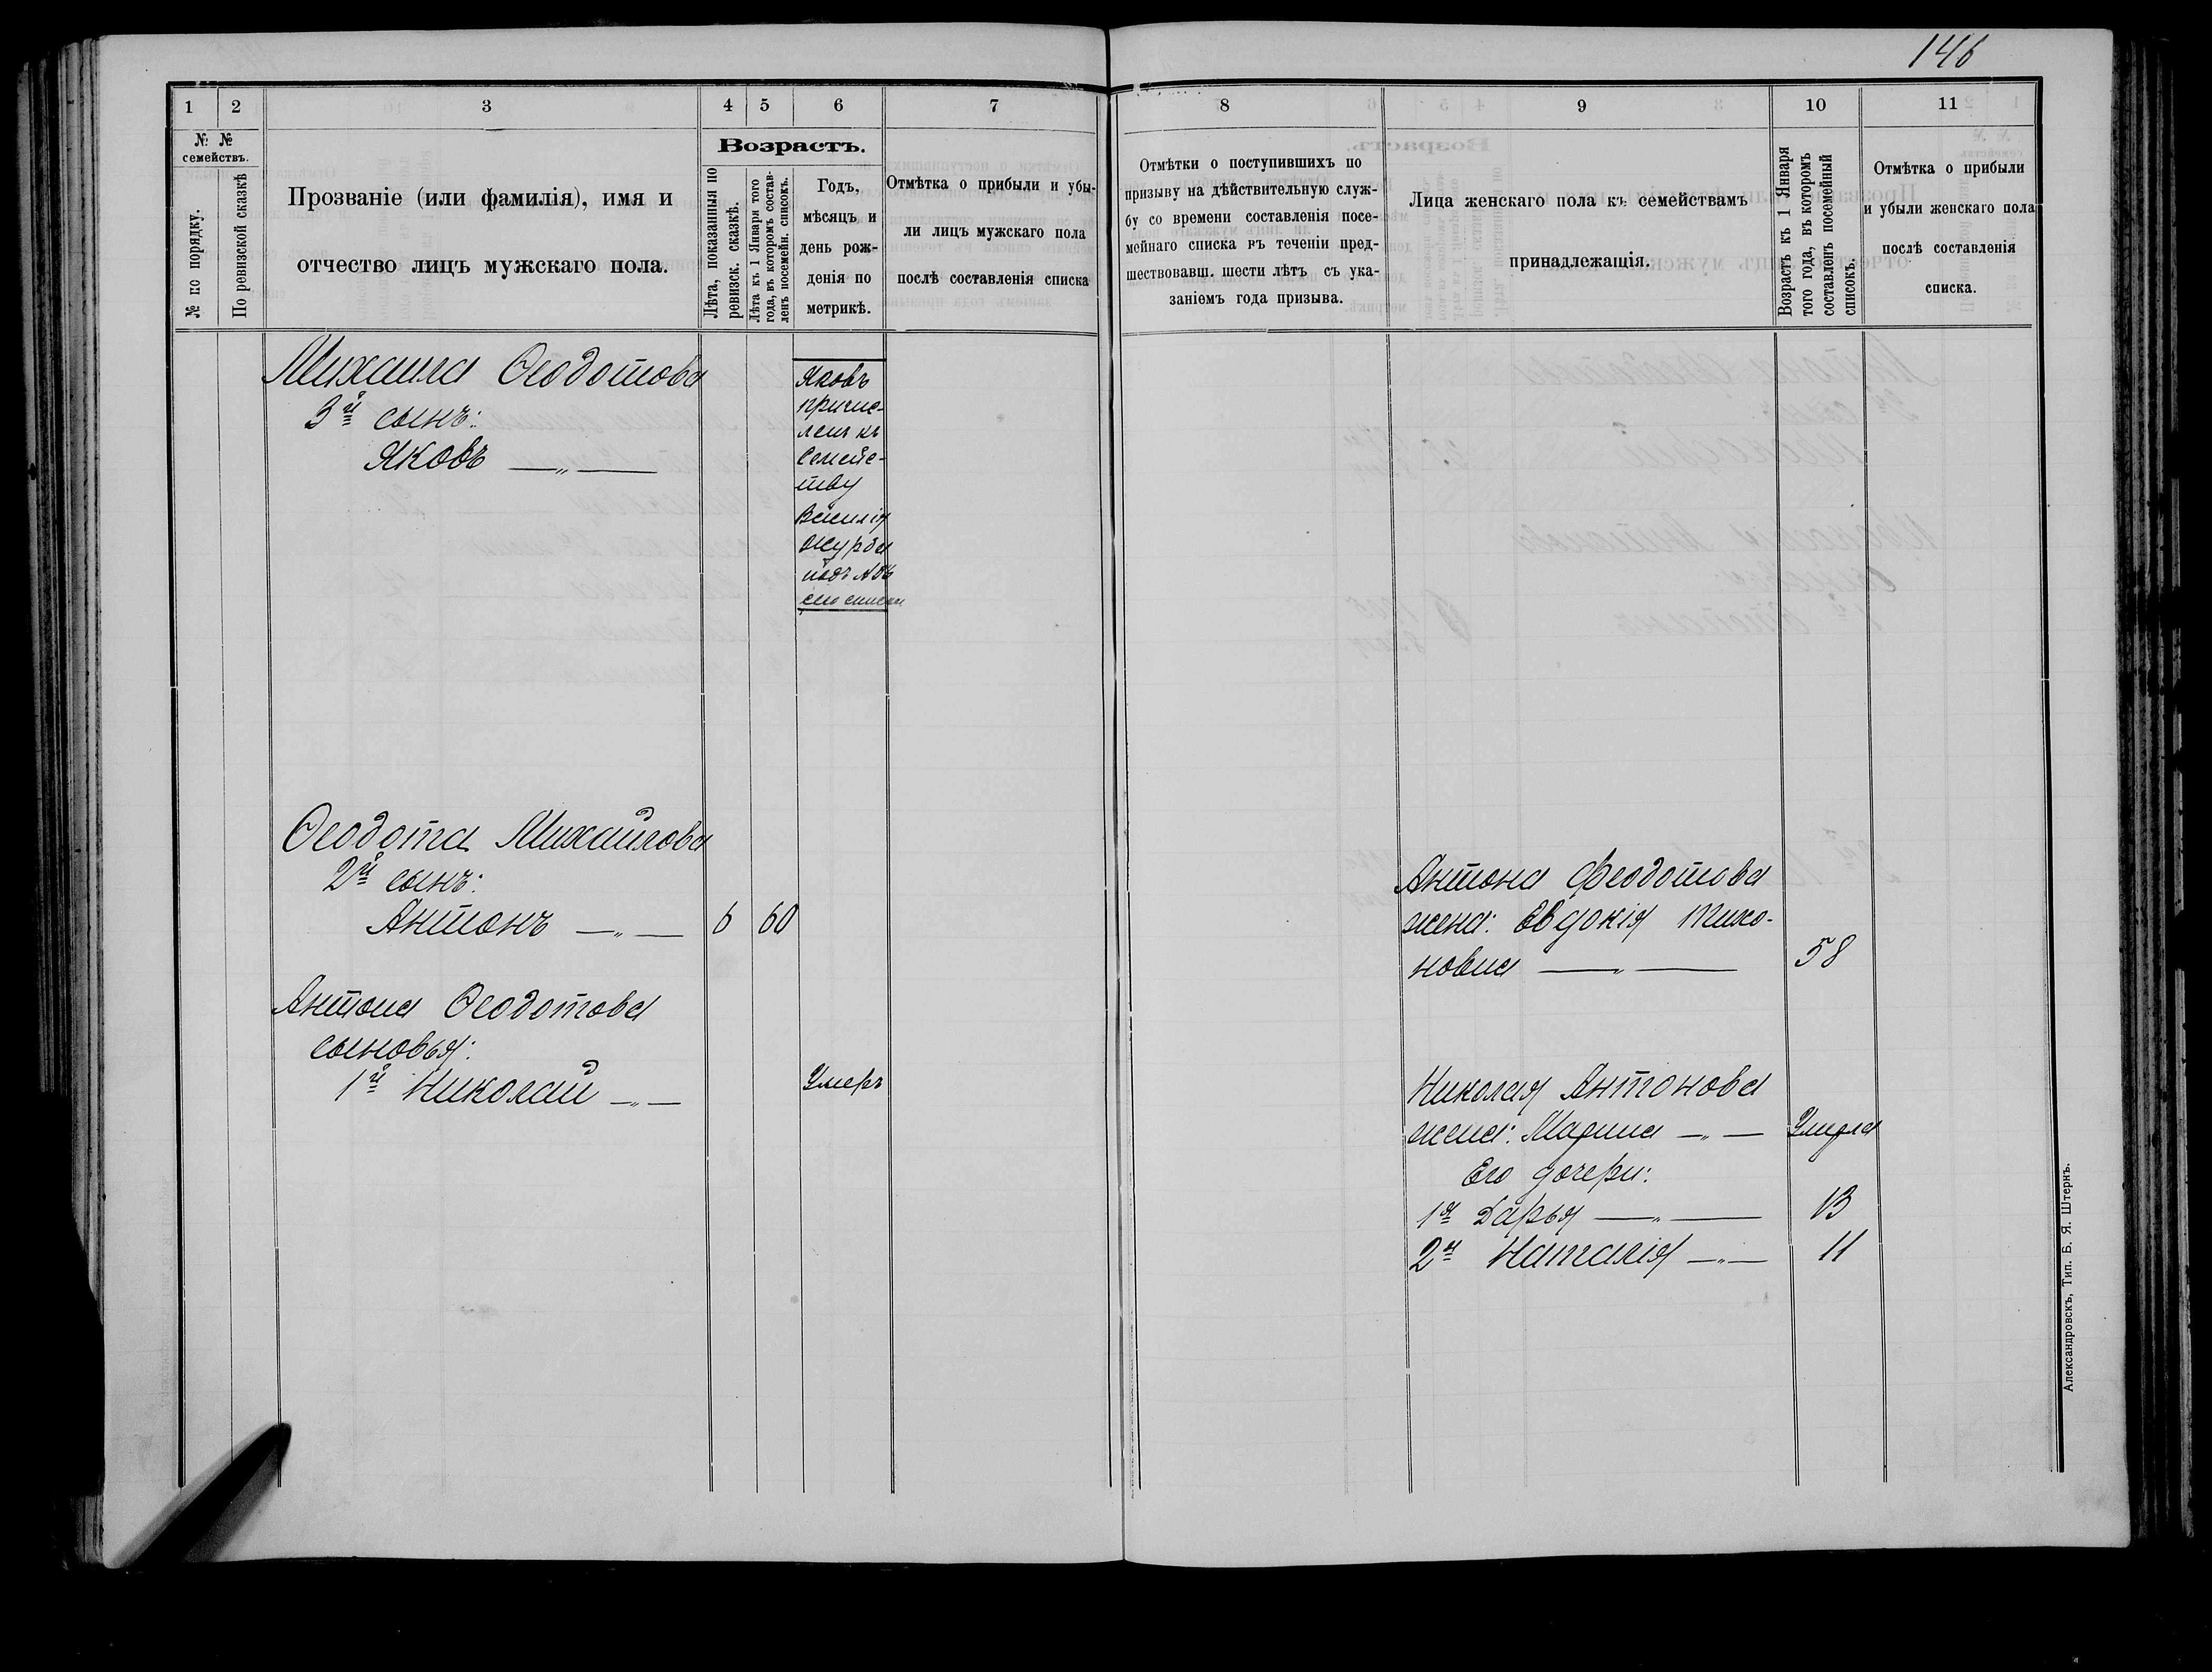 146
1
2
3
4
5
6
7
№ №
семействъ.
№ по порядку.
По ревизской сказкѣ
Прозваніе (или фамилія), имя и
отчество лицъ мужскаго пола.
Возрастъ.
Лѣта, показанныя по
ревизск. сказкѣ.
Лѣта къ 1 Января того
года, въ которомъ состав-
ленъ посемейн. списокъ.
Годъ,
мѣсяцъ и
день рож-
денія по
метрикѣ.
Отмѣтка о прибыли и убы-
ли лицъ мужскаго пола
послѣ составленія списка
Михаила Ѳеодотова
3й сынъ:
Яковъ —„—
Яковъ
причис-
ленъ къ
семейс-
тву
Василія
подъ №
Ѳеодота Михайлова
2й сынъ:
Антонъ —„— 6 60
Антона Ѳеодотова
сыновья:
1й Николай —„— Умеръ
8
9
10
11
Отмѣтки о поступившихъ по
призыву на дѣйствительную служ-
бу со времени составленія посе-
мейнаго списка въ теченіи пред-
шествовавш. шести лѣтъ съ ука-
заніемъ года призыва.
Лица женскаго пола къ семействамъ
принадлежащія.
Возрастъ къ 1 Января
того года, въ которомъ
составленъ посемейный
списокъ.
Отмѣтка о прибыли
и убыли женскаго пола
послѣ составленія
списка.
Антона Феодотова
жена: Евдокія Тихо-
новна —„— 58
Николая Антонова
жена: Марина —„— Умерла
Его дочери:
1я Дарья —„— 13
2я Наталія —„— 11
Александровскъ, Тип. Б. Я. Штернъ.